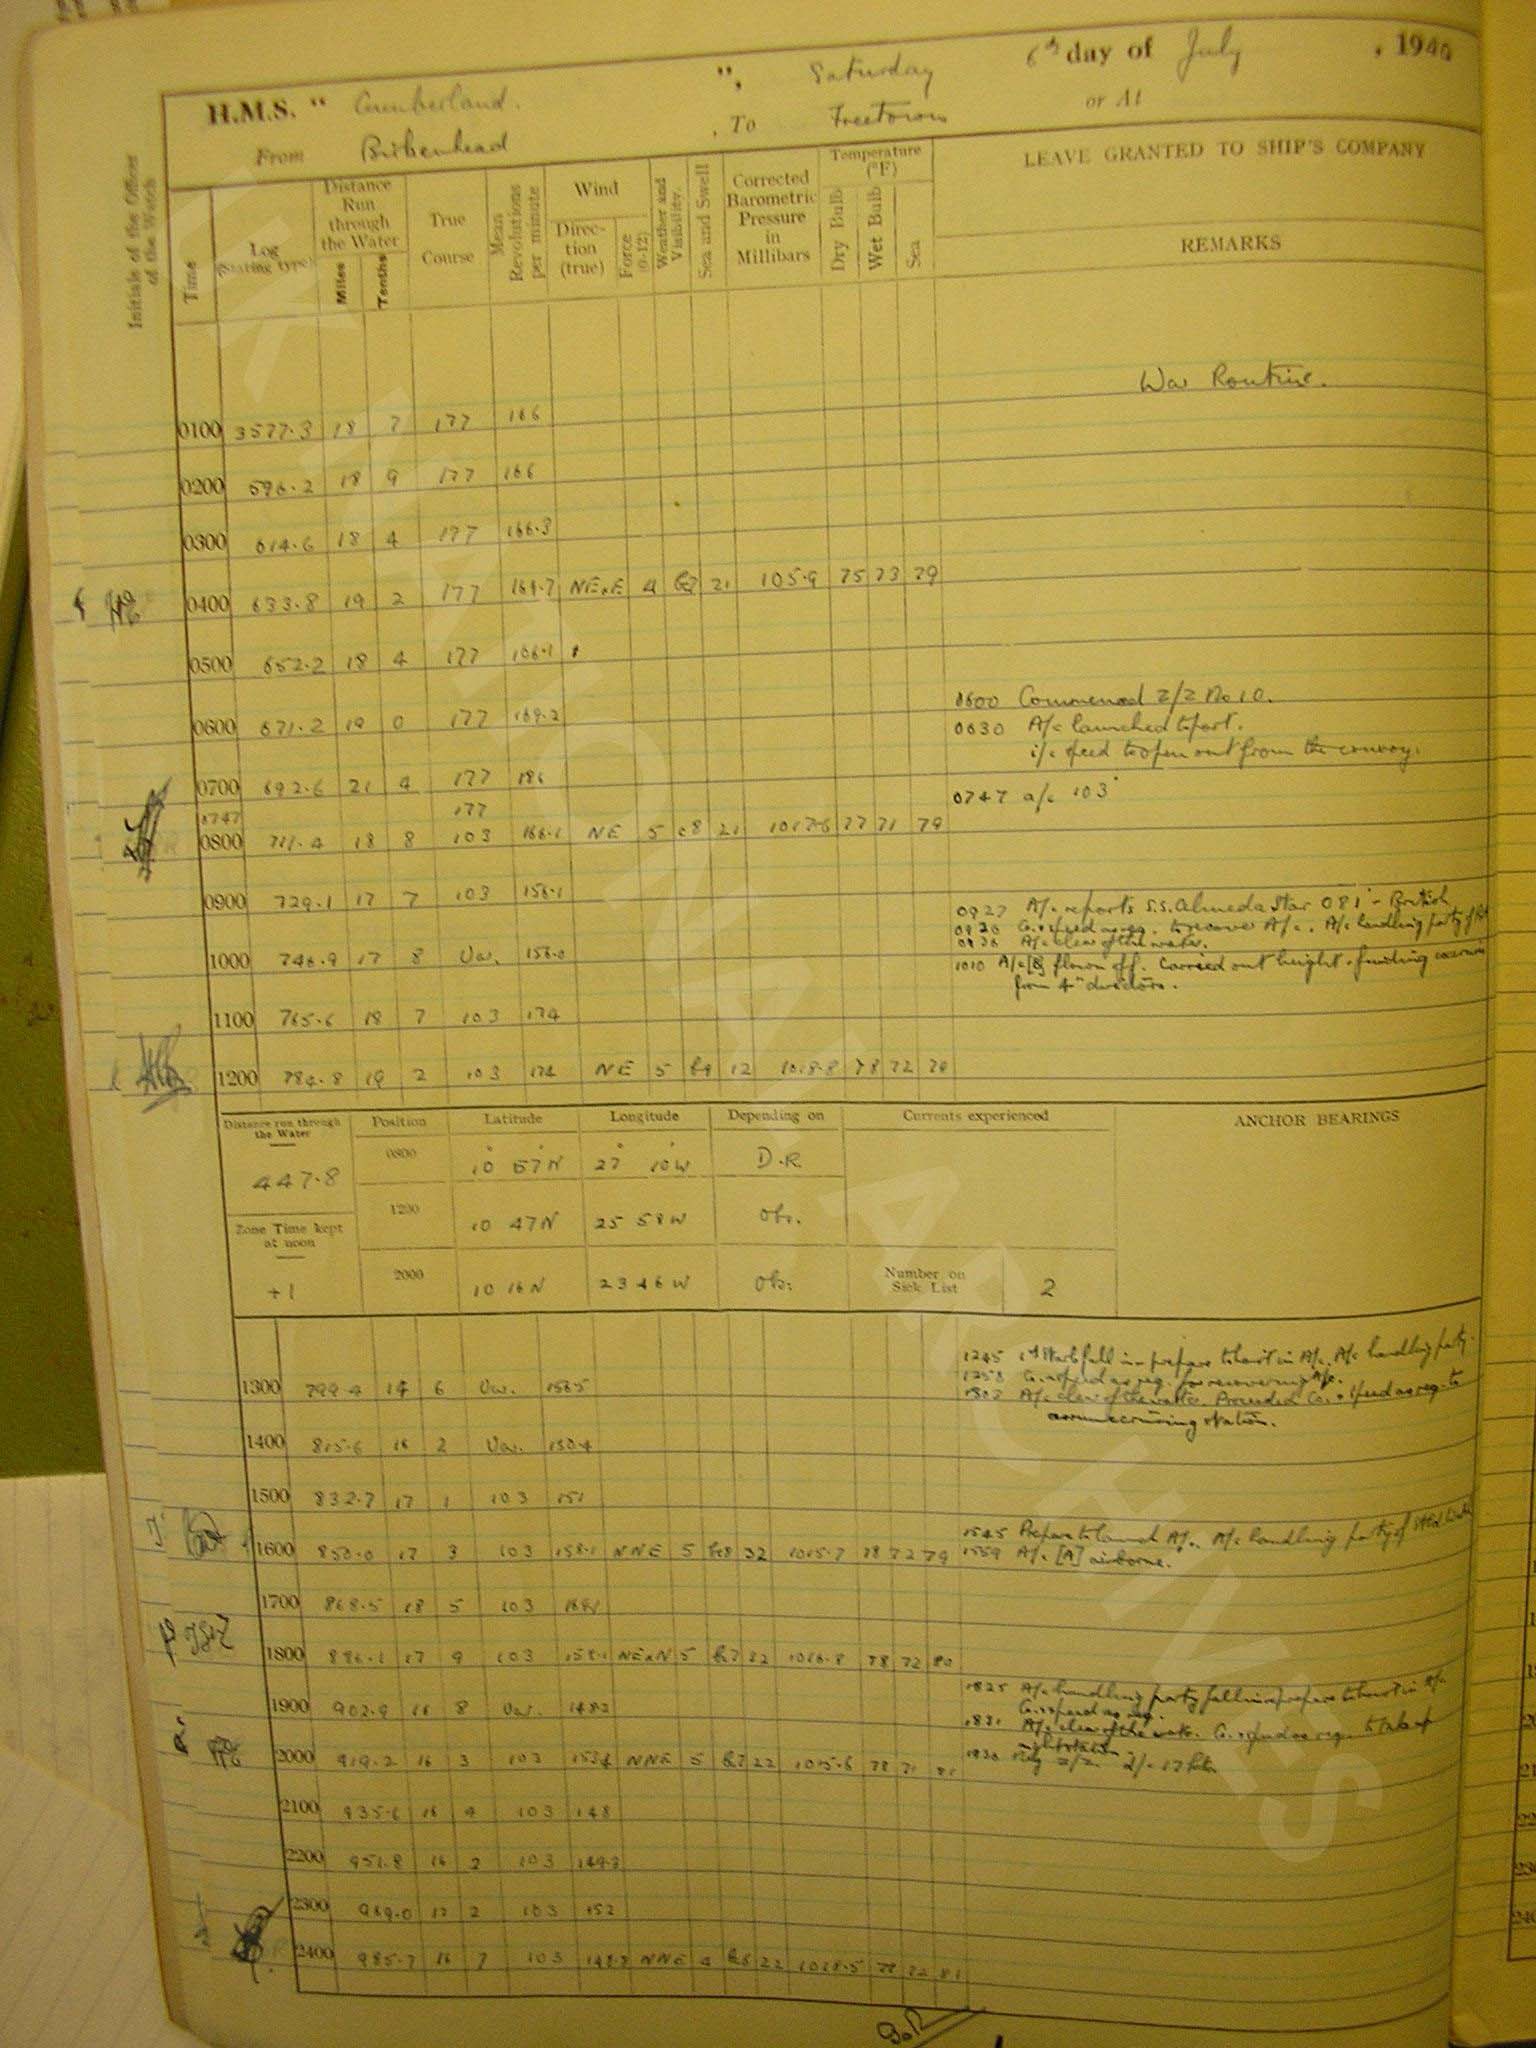 H.M.S. " Cumberland. ", Saturday 6th day of July , 1940
From Birkenhead , To Freetown or At
Initials of the Officer of the Watch
Time
Log (Stating type)
Distance Run through the Water
Miles Tenths
True Course
Mean Revolutions per minute
Wind
Direction (true)
Force (0-12)
Weather and Visibility.
Sea and Swell
Corrected Barometric Pressure in Millibars
Temperature (°F)
Dry Bulb Wet Bulb Sea
LEAVE GRANTED TO SHIP'S COMPANY
REMARKS
War Routine.
0100 3577.3 18 7 177 166
0200 596.2 18 9 177 166
0300 614.6 18 4 177 166.3
0400 633.8 19 2 177 NExE 4 21 75 73 79
0500 652.2 18 4 177
0600 Commenced Z/Z No 10.
0600 671.2 19 0 177 169.2
0630 A/c launched to port.
i/c speed to open out from the convoy.
0700 692.6 21 4 177 186
0747 a/c 103°
0747 177
0800 711.4 18 8 103 166.1 NE 5 c8 21 77 71 79
0900 729.1 17 7 103 156.1
0927 A/c reports S.S. Almeda Star 081° - British
Co. & speed as req. to recover A/c. A/c handling party
A/c clear of the water.
1000 746.9 17 8 Var. 156.0
1010 A/c flown off. Carried out height finding
from 4" directors.
1100 765.6 18 7 103 174
1200 784.8 19 2 103 174 NE 5 12 1018.8 78 72
Distance run through the Water
447.8
Zone Time kept at noon
+1
Position Latitude Longitude Depending on Currents experienced ANCHOR BEARINGS
0800 10° 57'N 27° 10'W D.R.
1200 10 47N 25 58W Obs.
2000 10 16N 23 46W Obs. Number on Sick List 2
1245 fall in - prepare to hoist in A/c. A/c handling party.
1258 Co. & speed as req. for recovering A/c.
1302 A/c clear of the water. Proceeded Co. & speed as req. to
assume cruising station.
1300 799.4 14 6 Var. 156.5
1400 815.6 16 2 Var. 150.4
1500 832.7 17 1 103 151
1545 Prepare to launch A/c. A/c handling party of
1600 850.0 17 3 103 158.1 NNE 5 32 1015.7 78 72 79
1559 A/c [A] airborne.
1700 868.5 18 5 103
1800 886.1 17 9 103 158.1 NExN 5 22 1016.8 78 72 80
1825 A/c handling party fall in & prepare to hoist in A/c.
Co. & speed as req.
1900 902.9 16 8 Var. 148.2
1831 A/c clear of the water. Co. & speed as req. to take up
night station.
2000 919.2 16 3 103 NNE 5 22 1015.6 78 71 81
1930
2100 935.6 16 4 103 148
2200 951.8 16 2 103
2300 969.0 17 2 103 152
2400 985.7 16 7 103 148.8 NNE 4 22 1018.5 81
UK NATIONAL ARCHIVES